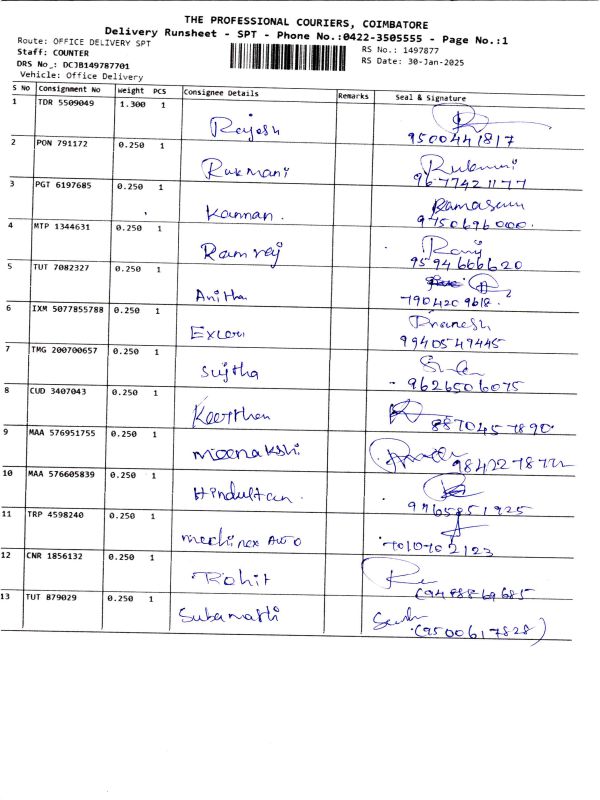 THE PROFESSIONAL COURIERS, COIMBATORE
Delivery Runsheet - SPT - Phone No.:0422-3505555 - Page No.:1
Route: OFFICE DELIVERY SPT
RS No.: 1497877
Staff: COUNTER
RS Date: 30-Jan-2025
DRS No.: DCJB149787701
Vehicle: Office Delivery
S No Consignment No Weight PCS Consignee Details Remarks Seal & Signature
1 TDR 5509049 1.300 1 Rajesh
9500441817
2 PON 791172 0.250 1 Rukmani Rukmani
9677421177
3 PGT 6197685 0.250 1 Kannan. Ramasamy
9750696000.
4 MTP 1344631 0.250 1 Ramraj Ramj
9594666620
5 TUT 7082327 0.250 1 Anitha
7904209618.
6 IXM 5077855788 0.250 1 Excel Pranesh
9940549445
7 TMG 200700657 0.250 1 Sujtha
9626506075
8 CUD 3407043 0.250 1 Keerthan
8870457890.
9 MAA 576951755 0.250 1 Meenakshi
10 MAA 576605839 0.250 1 Hindustan.
9765851925
11 TRP 4598240 0.250 1 Auto
7010702123
12 CNR 1856132 0.250 1 Rohit
13 TUT 879029 0.250 1
(9500617828)